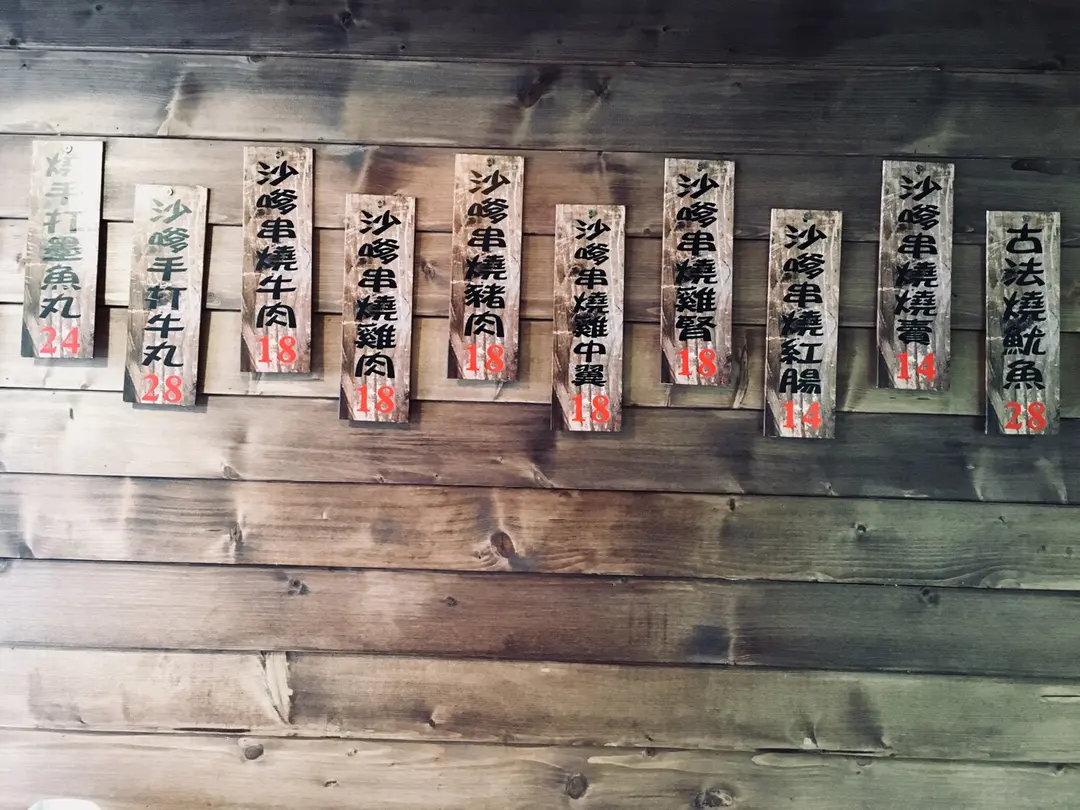 燒手打墨魚丸
24
沙嗲手打牛丸
28
沙嗲串燒牛肉
18
沙嗲串燒雞肉
18
沙嗲串燒豬肉
18
沙嗲串燒雞中翼
18
沙嗲串燒雞腎
18
沙嗲串燒紅腸
14
沙嗲串燒燒賣
14
古法燒魷魚
28